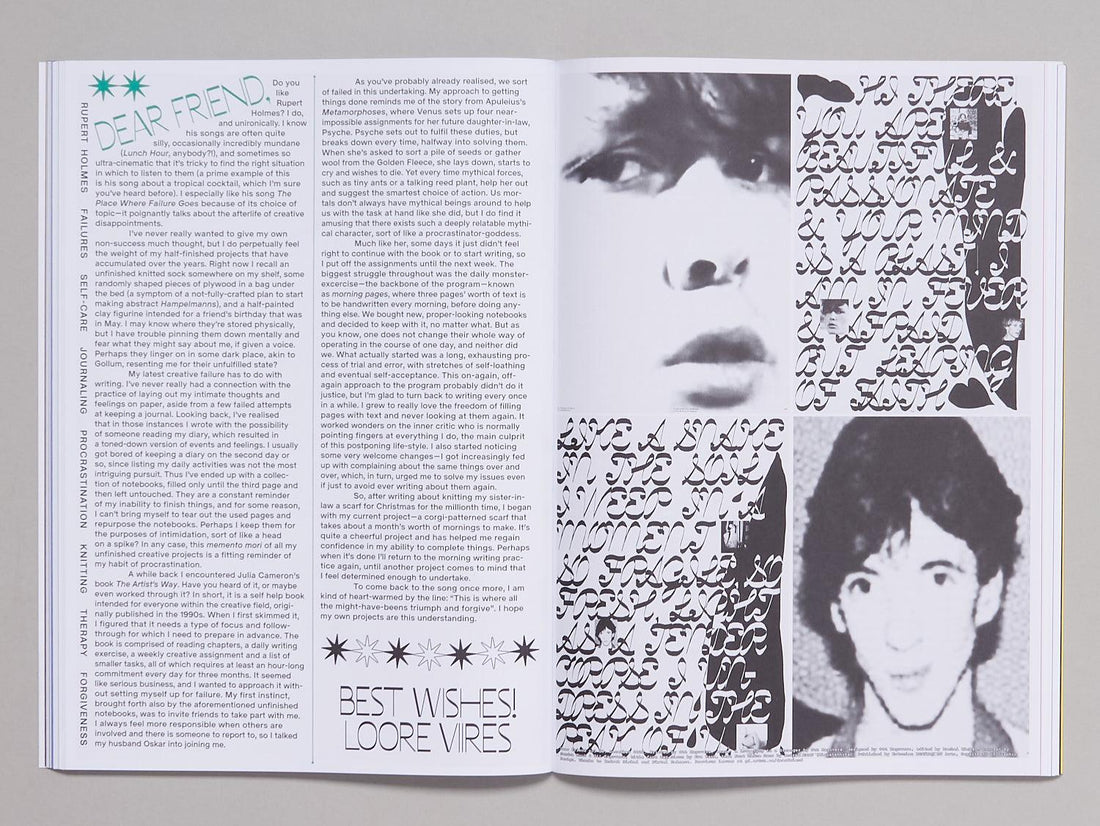 RUPERT HOLMES FAILURES SELF-CARE JOURNALING PROCRASTINATION KNITTING THERAPY FORGIVENESS
DEAR FRIEND,
Do you
like
Rupert
Holmes? I do,
and unironically. I know
his songs are often quite
silly, occasionally incredibly mundane
(Lunch Hour, anybody?!), and sometimes so
ultra-cinematic that it's tricky to find the right situation
in which to listen to them (a prime example of this
is his song about a tropical cocktail, which I'm sure
you've heard before). I especially like his song The
Place Where Failure Goes because of its choice of
topic—it poignantly talks about the afterlife of creative
disappointments.
I've never really wanted to give my own
non-success much thought, but I do perpetually feel
the weight of my half-finished projects that have
accumulated over the years. Right now I recall an
unfinished knitted sock somewhere on my shelf, some
randomly shaped pieces of plywood in a bag under
the bed (a symptom of a not-fully-crafted plan to start
making abstract Hampelmanns), and a half-painted
clay figurine intended for a friend's birthday that was
in May. I may know where they're stored physically,
but I have trouble pinning them down mentally and
fear what they might say about me, if given a voice.
Perhaps they linger on in some dark place, akin to
Gollum, resenting me for their unfulfilled state?
My latest creative failure has to do with
writing. I've never really had a connection with the
practice of laying out my intimate thoughts and
feelings on paper, aside from a few failed attempts
at keeping a journal. Looking back, I've realised
that in those instances I wrote with the possibility
of someone reading my diary, which resulted in
a toned-down version of events and feelings. I usually
got bored of keeping a diary on the second day or
so, since listing my daily activities was not the most
intriguing pursuit. Thus I've ended up with a collec-
tion of notebooks, filled only until the third page and
then left untouched. They are a constant reminder
of my inability to finish things, and for some reason,
I can't bring myself to tear out the used pages and
repurpose the notebooks. Perhaps I keep them for
the purposes of intimidation, sort of like a head
on a spike? In any case, this memento mori of all my
unfinished creative projects is a fitting reminder of
my habit of procrastination.
A while back I encountered Julia Cameron's
book The Artist's Way. Have you heard of it, or maybe
even worked through it? In short, it is a self help book
intended for everyone within the creative field, origi-
nally published in the 1990s. When I first skimmed it,
I figured that it needs a type of focus and follow-
through for which I need to prepare in advance. The
book is comprised of reading chapters, a daily writing
exercise, a weekly creative assignment and a list of
smaller tasks, all of which requires at least an hour-long
commitment every day for three months. It seemed
like serious business, and I wanted to approach it with-
out setting myself up for failure. My first instinct,
brought forth also by the aforementioned unfinished
notebooks, was to invite friends to take part with me.
I always feel more responsible when others are
involved and there is someone to report to, so I talked
my husband Oskar into joining me.
As you've probably already realised, we sort
of failed in this undertaking. My approach to getting
things done reminds me of the story from Apuleius's
Metamorphoses, where Venus sets up four near-
impossible assignments for her future daughter-in-law,
Psyche. Psyche sets out to fulfil these duties, but
breaks down every time, halfway into solving them.
When she's asked to sort a pile of seeds or gather
wool from the Golden Fleece, she lays down, starts to
cry and wishes to die. Yet every time mythical forces,
such as tiny ants or a talking reed plant, help her out
and suggest the smartest choice of action. Us mor-
tals don't always have mythical beings around to help
us with the task at hand like she did, but I do find it
amusing that there exists such a deeply relatable mythi-
cal character, sort of like a procrastinator-goddess.
Much like her, some days it just didn't feel
right to continue with the book or to start writing, so
I put off the assignments until the next week. The
biggest struggle throughout was the daily monster-
excercise—the backbone of the program—known
as morning pages, where three pages' worth of text is
to be handwritten every morning, before doing any-
thing else. We bought new, proper-looking notebooks
and decided to keep with it, no matter what. But as
you know, one does not change their whole way of
operating in the course of one day, and neither did
we. What actually started was a long, exhausting pro-
cess of trial and error, with stretches of self-loathing
and eventual self-acceptance. This on-again, off-
again approach to the program probably didn't do it
justice, but I'm glad to turn back to writing every once
in a while. I grew to really love the freedom of filling
pages with text and never looking at them again. It
worked wonders on the inner critic who is normally
pointing fingers at everything I do, the main culprit
of this postponing life-style. I also started noticing
some very welcome changes—I got increasingly fed
up with complaining about the same things over and
over, which, in turn, urged me to solve my issues even
if just to avoid ever writing about them again.
So, after writing about knitting my sister-in-
law a scarf for Christmas for the millionth time, I began
with my current project—a corgi-patterned scarf that
takes about a month's worth of mornings to make. It's
quite a cheerful project and has helped me regain
confidence in my ability to complete things. Perhaps
when it's done I'll return to the morning writing prac-
tice again, until another project comes to mind that
I feel determined enough to undertake.
To come back to the song once more, I am
kind of heart-warmed by the line: "This is where all
the might-have-beens triumph and forgive". I hope
my own projects are this understanding.
BEST WISHES!
LOORE VIIRES
HI THERE,
YOU ARE
BEAUTIFUL &
PASSIONATE
& YOUR MIND
IS A BLAST I
AM IN FEVER
& AFRAID
BUT LEAPING
OF FAITH
LIKE A SNAKE
IN THE SOIL
I WEEP IN A
MOMENT
SO FRAGILE SO
FRESH LIGHT
AS A TENDER
CORPSE IN
DRESS IN THE